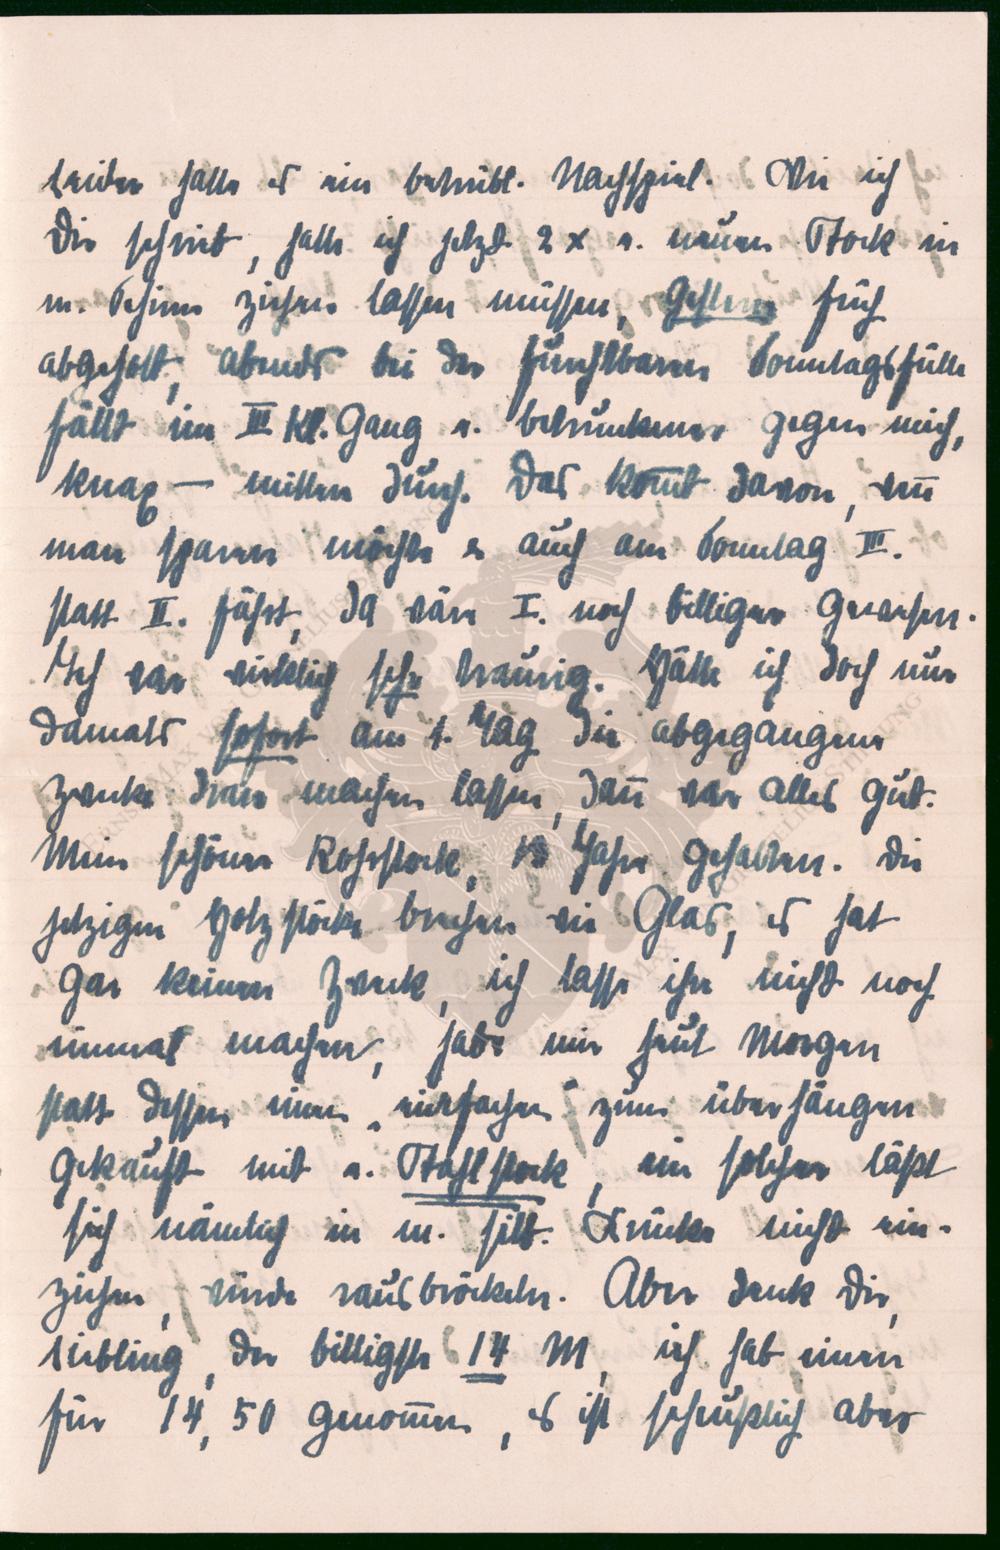 Leider hatte es ein betrübl. Nachspiel. Wie ich
Dir schrieb, hatte ich jetzt 2 x e. neuen Stock in
m. Schirm ziehen lassen müssen, Gestern früh
abgeholt, abends bei der furchtbaren Sonntagsfülle
fällt im III Kl. Gang e. betrunkener gegen mich,
knax — mitten durch. Das kom̄t davon, wen̄
man sparen möchte u. auch am Sonntag III.
statt II. fährt, da wäre I. noch billiger gewesen.
Ich war wirklich sehr traurig. Hätte ich doch nur
damals sofort am 1. Tag die abgegangene
Zwecke dran machen lassen, dan̄ war alles gut.
Mein schöner Rohrstock, 13 Jahre gehalten. Die
jetzigen Holzstöcke brechen wie Glas, es hat
gar keinen Zweck, ich lasse ihn nicht noch
einmal machen, habe mir heut Morgen
statt dessen einen „einfachen" zum überhängen
gekauft mit e. Stahlstock, ein solcher läßt
sich nämlich in m. silb. Krücke nicht ein-
ziehen, würde rausbröckeln. Aber denk Dir,
Liebling, der billigste 14 M, ich hab einen
für 14,50 genom̄en, es ist scheußlich aber
ERNST MAX
STIFTUNG